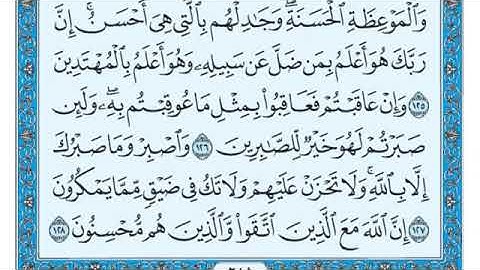 وَٱلْمَوْعِظَةِ ٱلْحَسَنَةِ ۖ وَجَٰدِلْهُم بِٱلَّتِى هِىَ أَحْسَنُ ۚ إِنَّ
رَبَّكَ هُوَ أَعْلَمُ بِمَن ضَلَّ عَن سَبِيلِهِۦ وَهُوَ أَعْلَمُ بِٱلْمُهْتَدِينَ
١٢٥ وَإِنْ عَاقَبْتُمْ فَعَاقِبُوا۟ بِمِثْلِ مَا عُوقِبْتُم بِهِۦ ۖ وَلَئِن
صَبَرْتُمْ لَهُوَ خَيْرٌ لِّلصَّٰبِرِينَ ١٢٦ وَٱصْبِرْ وَمَا صَبْرُكَ
إِلَّا بِٱللَّهِ ۚ وَلَا تَحْزَنْ عَلَيْهِمْ وَلَا تَكُ فِى ضَيْقٍ مِّمَّا يَمْكُرُونَ
١٢٧ إِنَّ ٱللَّهَ مَعَ ٱلَّذِينَ ٱتَّقَوا۟ وَّٱلَّذِينَ هُم مُّحْسِنُونَ ١٢٨